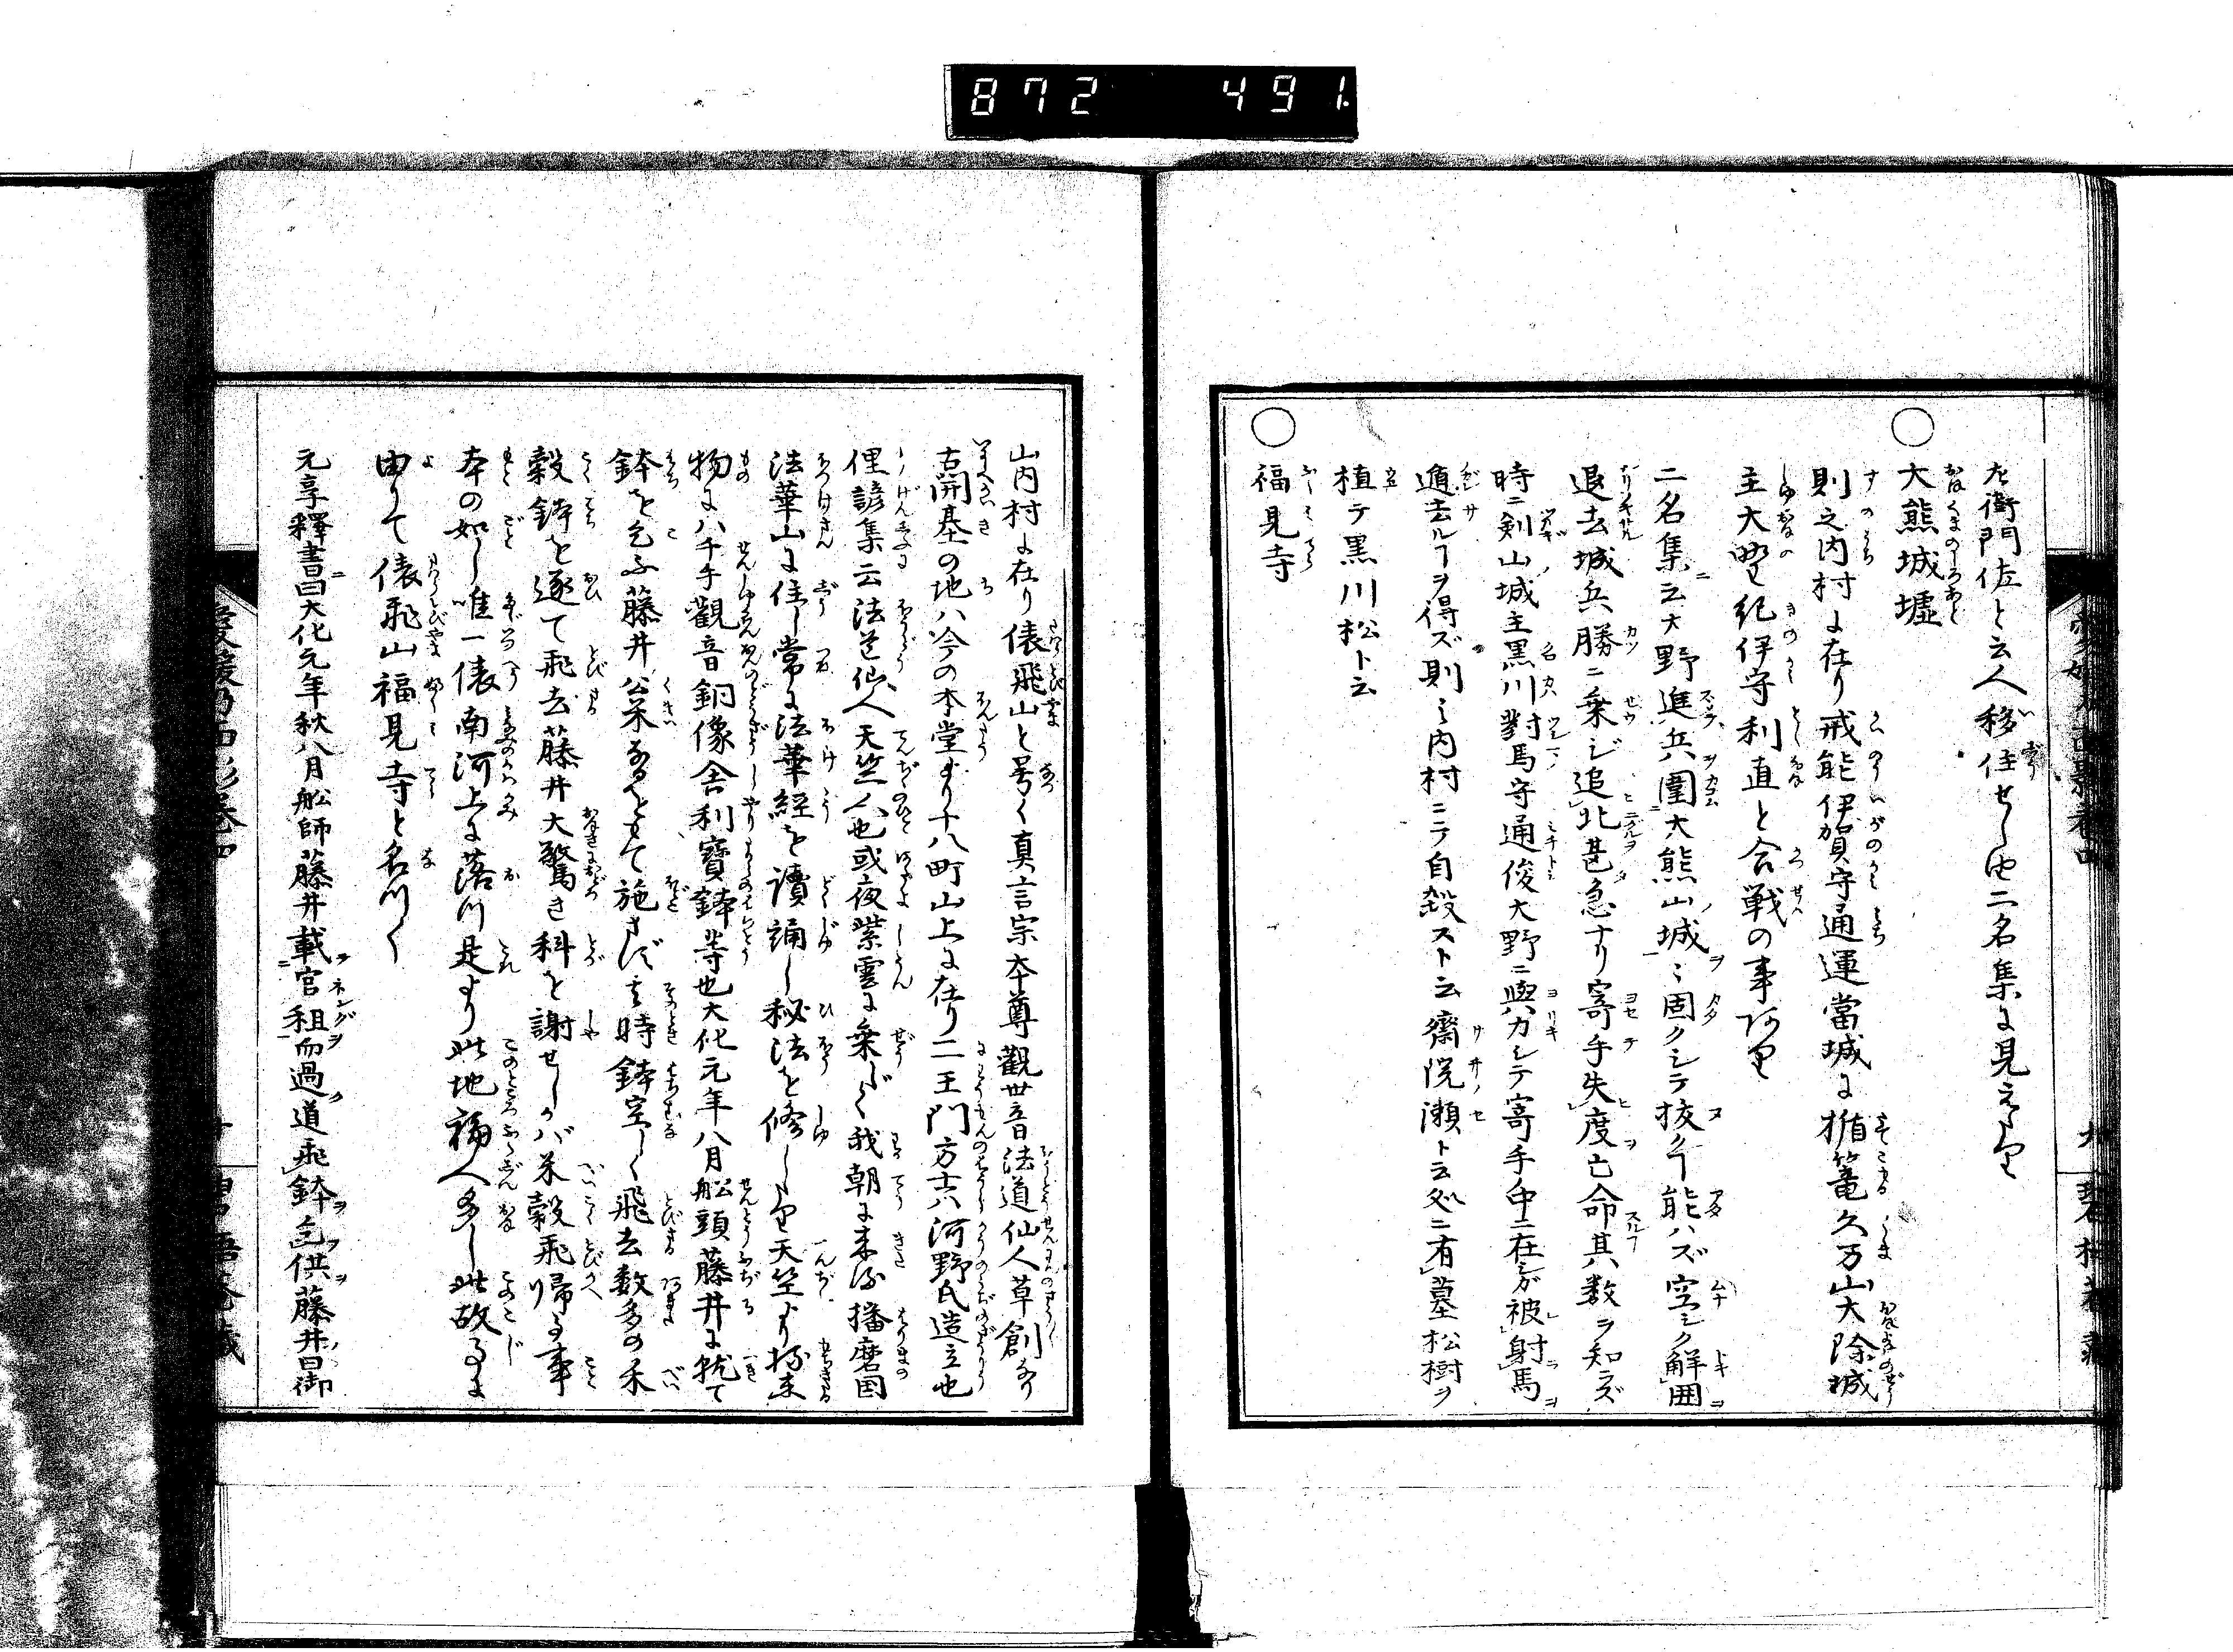 872 491
左衛門佐と云人移住せし由二名集に見えたり
大熊城墟
則之内村に在り戒能伊賀守通運當城に楯篭久万山大除城
主大野紀伊守利直と合戦の事あり
二名集ニ云大野進兵圍大熊山城ミ固クシテ抜クヿ能ハズ空シク解囲
退去城兵勝ニ乗ジ追北甚急ナリ寄手失度亡命其数ヲ知ラズ
時ニ剣山城主黒川對馬守通俊大野ニ與力シテ寄手ノ中ニ在シガ被射馬
遁去ルヿヲ得ズ則之内村ニテ自殺スト云齋院瀬ト云処ニ有墓松樹ヲ
植テ黒川松ト云
福見寺
山内村に在り俵飛山と号く真言宗本尊觀世音法道仙人草創なり
古開基の地ハ今の本堂より十八町山上に在り二王門方六河野氏造立也
俚諺集云法道仙人天竺人也或夜紫雲に乗じて我朝に来る播磨国
法華山に住し常に法華經を讀誦し秘法を修しけり天竺より持来
物にハ千手觀音銅像舎利寶鉢等也大化元年八月舩頭藤井に就て
鉢を乞ふ藤井公米なるをもて施さず其時鉢空しく飛去数多の米
穀鉢を逐て飛去藤井大驚き科を謝せしかバ米穀飛帰る事
本の如し唯一俵南河上に落つ是より此地福人多し此故事に
由りて俵飛山福見寺と名つく
元亨釋書ニ曰大化元年秋八月舩師藤井載官租而過道飛鉢乞供藤井曰御